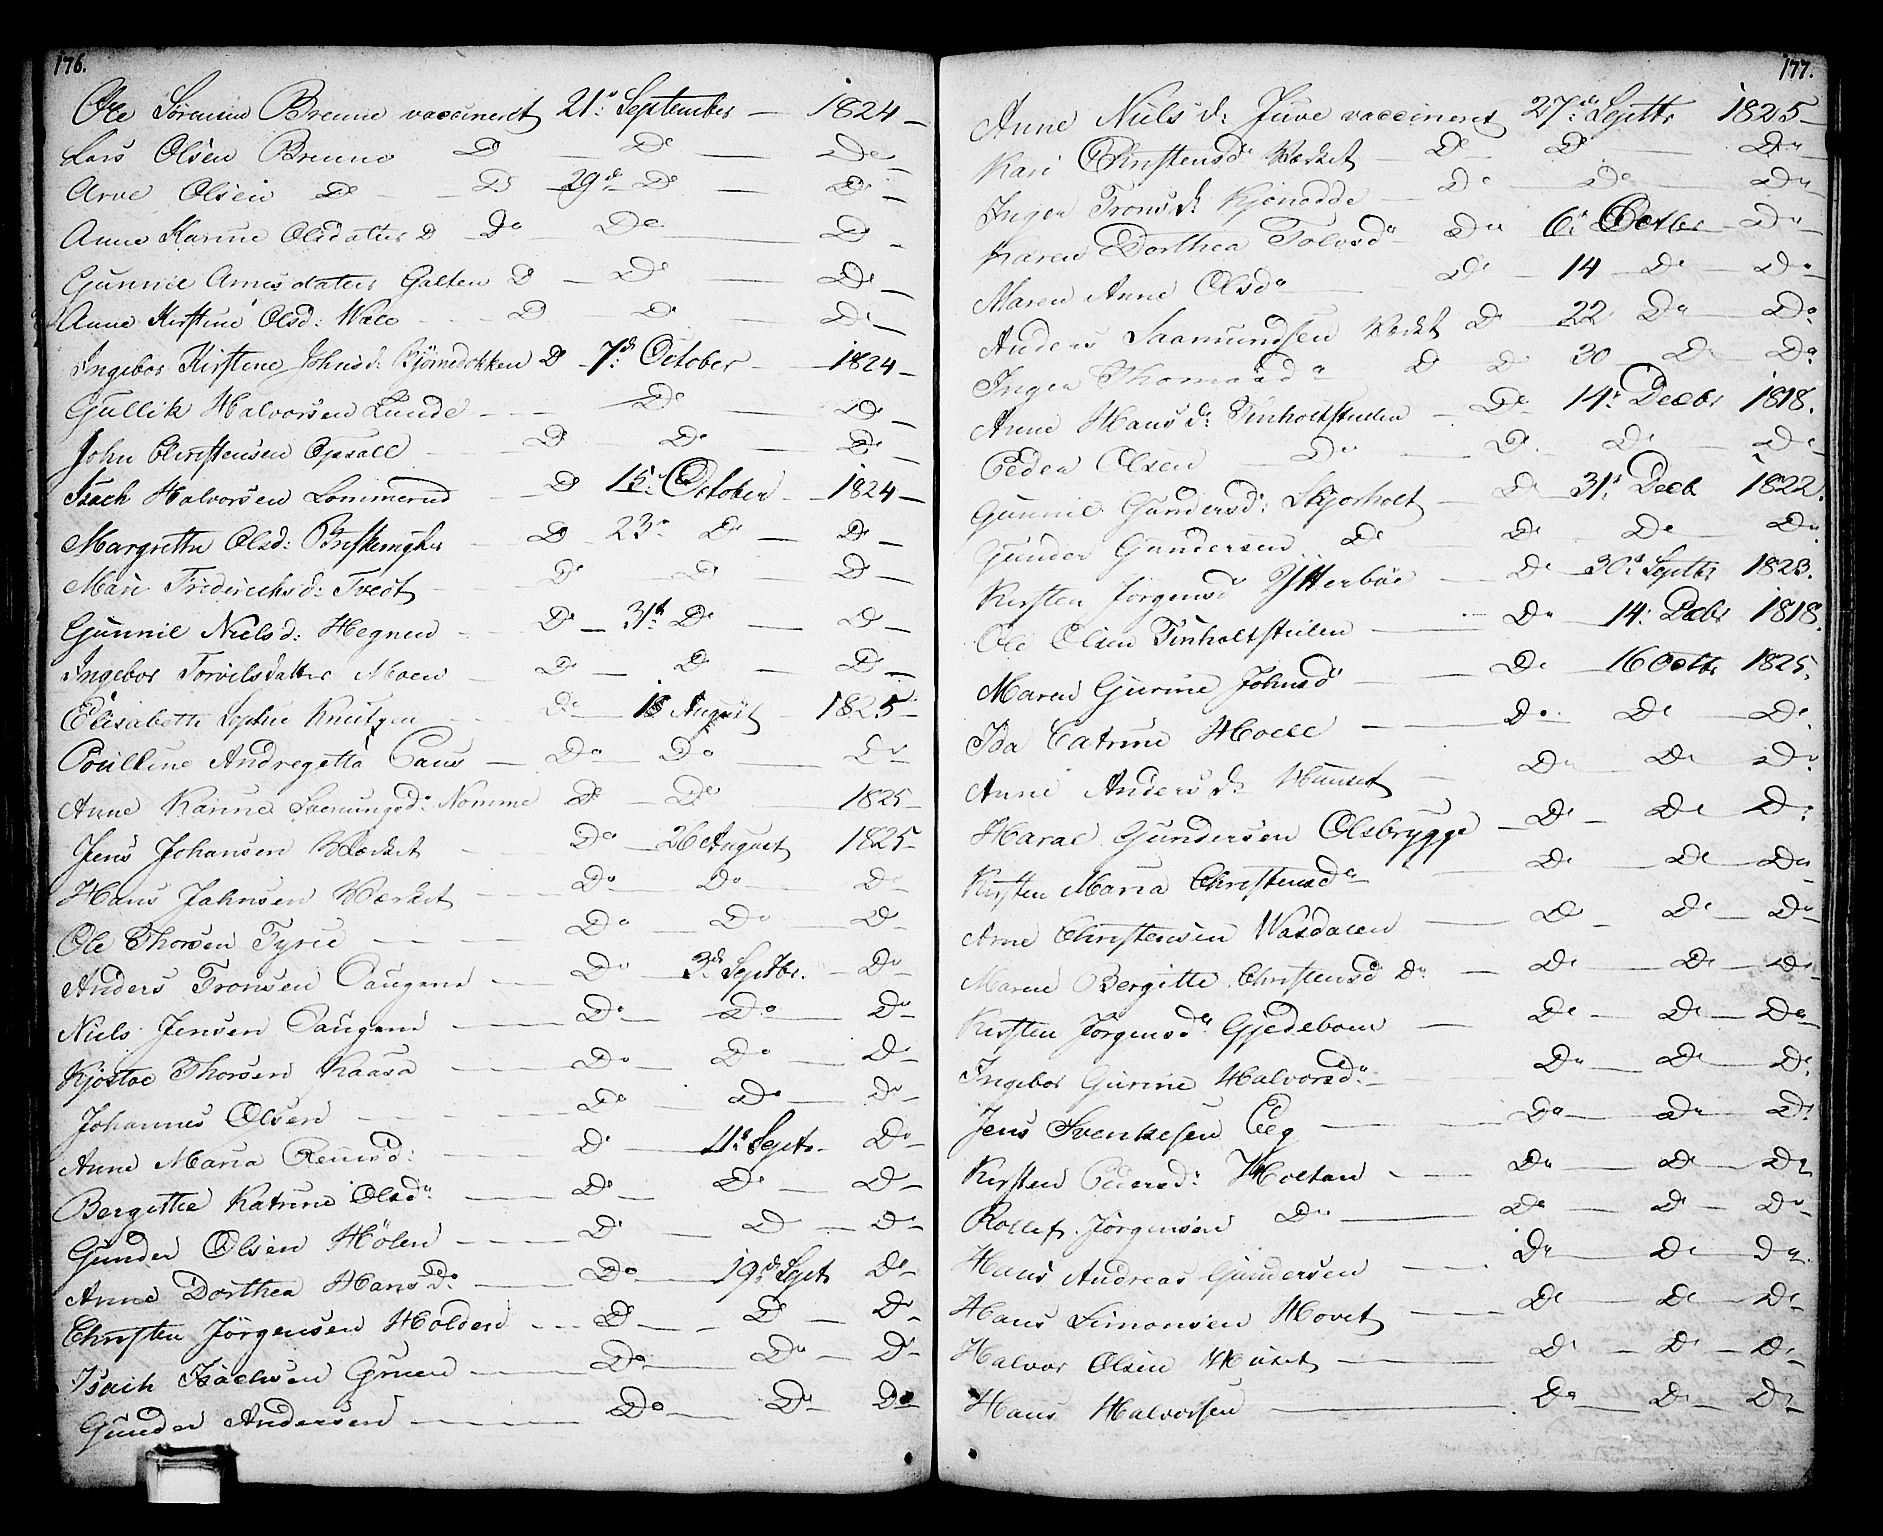 176.
Ole Sörensen Brenne vaccineret 21de September — 1824 —
Lars Olsen Brenne D — De — De —
Arve Olsen De — D 29de De — De —
Anne Karine Olsdatter D — Do — De — D —
Gunnil Arnesdatter Galten D — De — De —
Anne Kirstine Olsd: Wale — D — De — De —
Ingebor Kirstene Johnsd: Björnedokken D — 7de October — 1824 —
Gullik Halvorsen Lunde — De — De —
John Christensen Opsall — D — De — De —
Isach Halvorsen Lommerud — D 15de October — 1824 —
Margrethe Olsd: — D — 23de De — De —
Mari Fridrichsd: Tvedt — De — De — D —
Gunnil Nielsd: Hegnen — De — 31te De — D —
Ingebor Torvilsdatter Moen — De — De — De —
Elisabeth Sophie Knutzen — De — 18 August — 1825 —
Poulline Andregetta Paus — Do — Do — Do
Anne Karine Svenungsd: Nomme De — De 1825 —
Jens Johansen Værket — Do — 26 August 1825 —
Hans Jahnsen Værket — Do — Do — Do
Ole Thorsen Tyrie — Do — Do — D —
Anders Tronsen Haugene — Do — 3de Septbr. — Do —
Niels Jensen Haugene — Do — Do — Do —
Kjöstoe Thorsen Kaasa — Do — Do — D —
Johannes Olsen — Do — Do — Do —
Anne Maria Reiersd: — De — 11te Sept. Do —
Bergithe Katrine Olsdr — De — De — D —
Gunder Olsen Hölen — De — D — De —
Anne Dorthea Hansdr — Do — 19de Sept De —
Christen Jörgensen Holden — D — D — D —
Isach Isachsen Gruen — Do — Do — D —
Gunder Andersen — Do — Do — Do
177.
Anne Nielsd: Juve vaccineret 27de Septbr 1825 —
Kari Christensd: Værket De — De — Do —
Inger Tronsd: — De — De — Do
Karen Dorthea Tolvsdr — Do 6te Octbr — Do —
Maren Anne Olsdr — De — 14 — De — Do —
Anders Saamundsen Værket D — 22 Do — Do
Inger Thomasdr — D De 20 De — Do
Anne Hansd: Tinholtstulen — Do — 14de Decbr 1818.
Peder Olsen — Do — D. De — De
Gunnil Gundersd: Skjorholt — De 31te Decb 1822.
Gunder Gundersen De — De De — Do
Kirsten Jörgensd: Ytterböe — De — 30te Septbr 1823.
Ole Olsen Tinholtstulen — Do — 14. Decbr 1818.
Maren Gurine Johnsd — De — 16 Octbr 1825.
Ida Catrine Holle — Do. De — De
Anne Andersd: — Do De Do
Harae Gundersen Olsbrygge — De — De — D
Kirsten Maria Christensdr — De — De — Do
Arne Christensen Vasdalen — De — De — Do
Maren Bergitte Christensd Do — De — De — De
Kirsten Jörgensdr Gjedeboen — De — De — Do
Ingebor Gurine Halvorsdr — Do — De — De
Jens Svenkesen Eeg — Do — Do — D
Kirsten Pedersd: Holtan — Do — De — Do
Rollef Jörgensen Do — Do — D — Do
Hans Andreas Gundersen — Do — De Do
Hans Simonsen Hovet — De — De — De
Halvor Olsen — De — De — De
Hans Halvorsen — Do — D — D